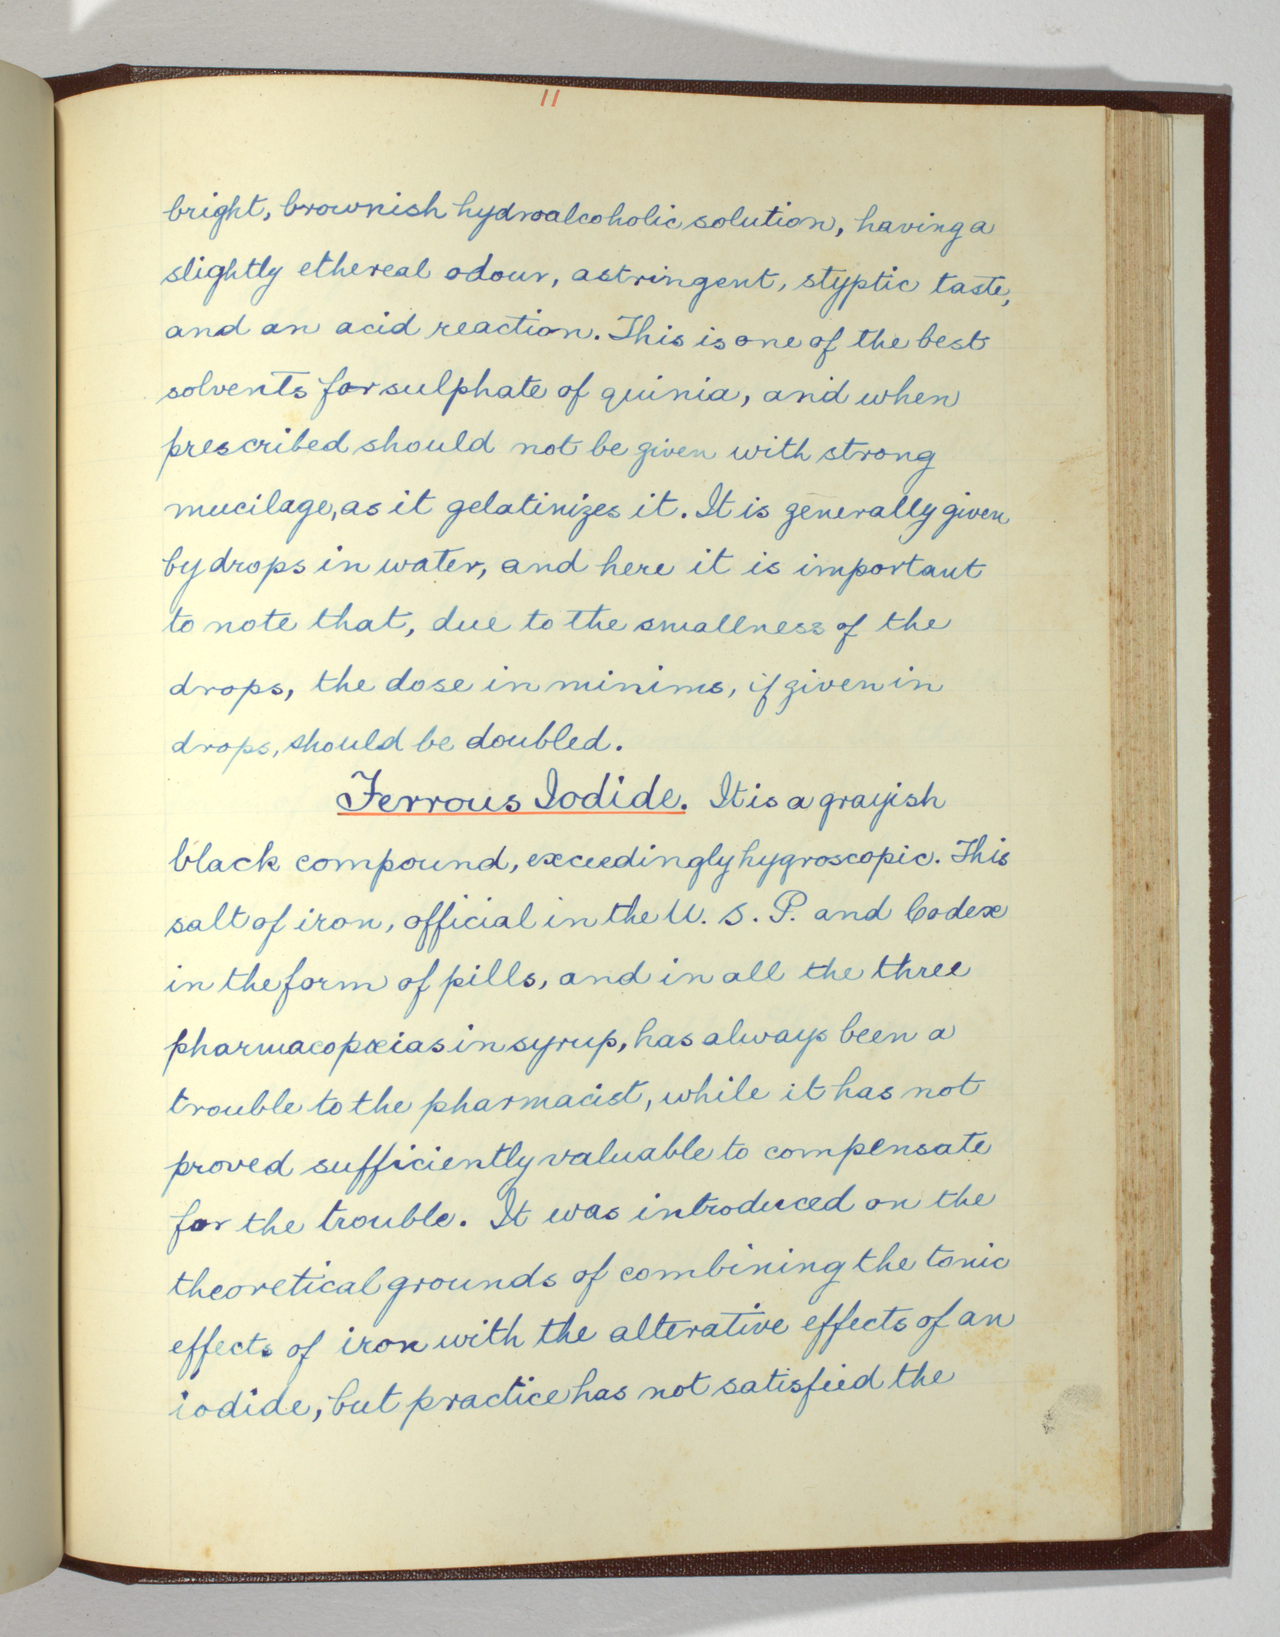 11
bright, brownish hydroalcoholic solution, having a
slightly ethereal odour, astringent, styptic taste,
and an acid reaction. This is one of the best
solvents for sulphate of quinia, and when
prescribed should not be given with strong
mucilage, as it gelatinizes it. It is generally given
by drops in water, and here it is important
to note that, due to the smallness of the
drops, the dose in minims, if given in
drops, should be doubled.
Ferrous Iodide. It is a grayish
black compound, exceedingly hygroscopic. This
salt of iron, official in the U. S. P. and Codex
in the form of pills, and in all the three
pharmacopœias in syrup, has always been a
trouble to the pharmacist, while it has not
proved sufficiently valuable to compensate
for the trouble. It was introduced on the
theoretical grounds of combining the tonic
effects of iron with the alterative effects of an
iodide, but practice has not satisfied the